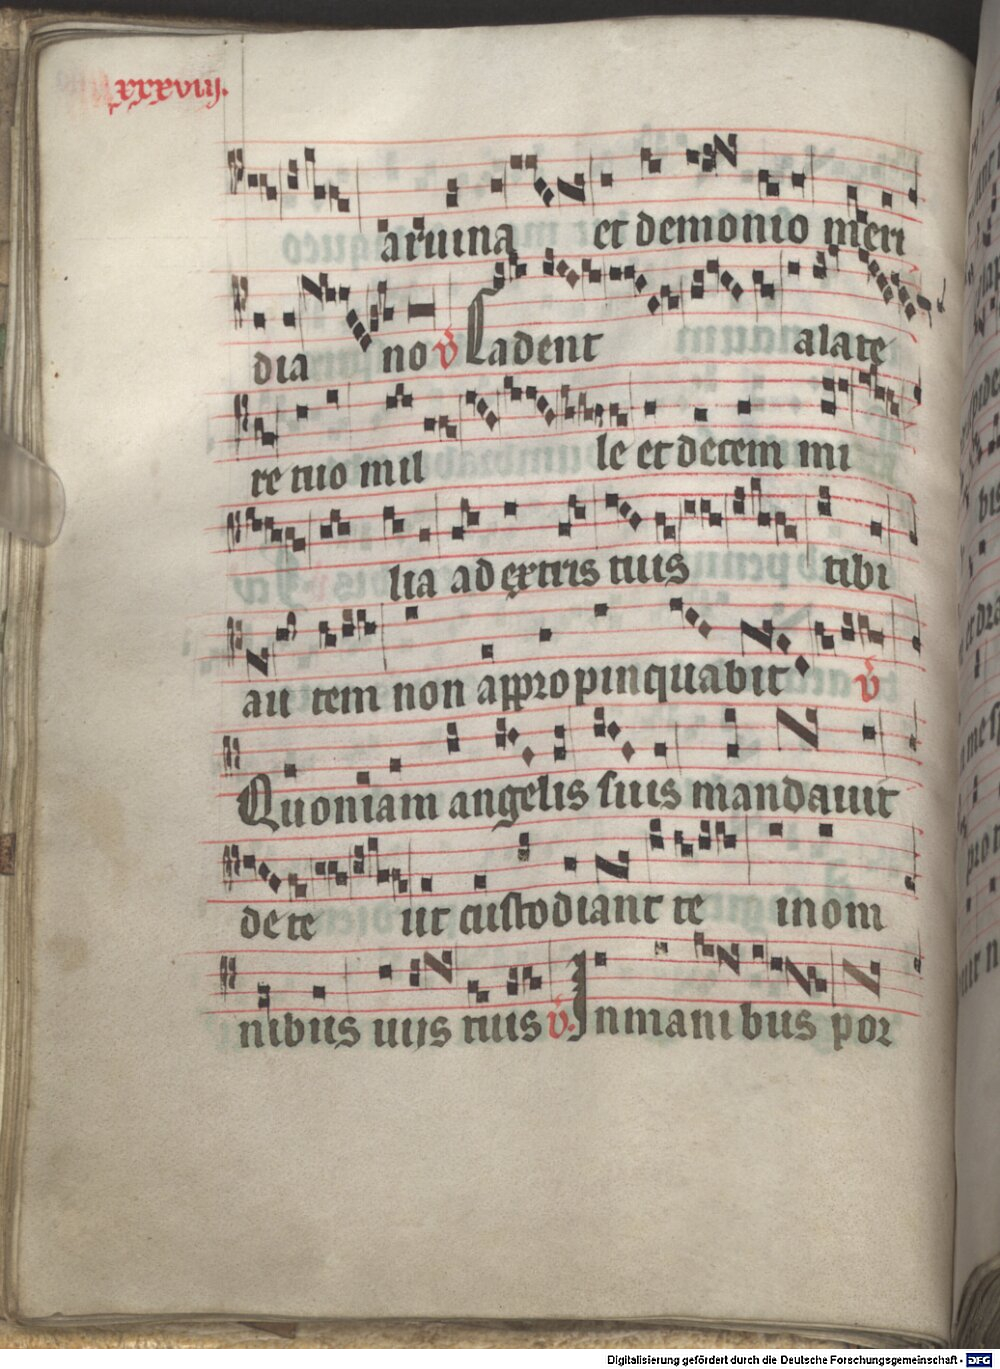 xxxviij.
a ruina et demonio meri
dia no v Cadent a late
re tuo mil le et decem mi
lia ad extris tuis tibi
au tem non appropinquabit v
Quoniam angelis suis mandauit
de te ut custodiant te in om
nibus uijs tuis v. In mani bus por
Digitalisierung gefördert durch die Deutsche Forschungsgemeinschaft - DFG